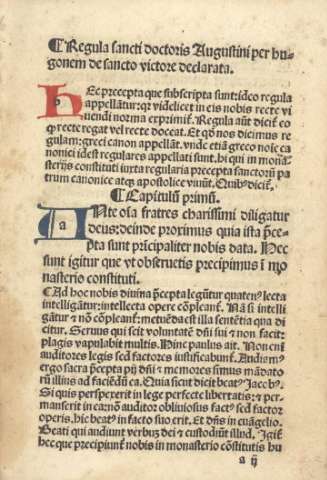 ¶Regula sancti doctoris Augustini per hu-
gonem de sancto victore declarata.
HEc precepta que subscripta sunt: ideo regula
appellãtur: qr videlicet in eis nobis recte vi
uendi norma exprimit̃. Regula aũt dicit̃ eo
ꝙ recte regat vel recte doceat. Et qđ nos dicimus re
gulam: greci canon appellãt. vnde etiã greco noie ca
nonici idest regulares appellati sunt. hi qui in mona-
sterijs constituti iuxta regularia precepta sanctorũ pa
trum canonice atqꝫ apostolice viuũt. Quibꝰ dicit̃.
¶Capitulũ primũ.
ANte oĩa fratres charissimi diligatur
deus: deinde proximus quia ista p̃ce-
pta sunt prĩcipaliter nobis data. Hec
sunt igitur que vt obseruetis precipimus ĩ mo
nasterio constituti.
¶Ad hoc nobis diuina p̃cepta legũtur quatenꝰ lecta
intelligãtur: intellecta opere cõpleant̃. Nã si intelli
gãtur ⁊ nõ cõpleant̃: metuẽda est illa sentẽtia qua di
citur. Seruus qui scit voluntatẽ dñi sui ⁊ non facit:
plagis vapulabit multis. Hinc paulus ait. Non eñ
auditores legis sed factores iustificabunt̃. Audiamꝰ
ergo sacra p̃cepta pij dñi ⁊ memores simus mãdato
rũ illius ad faciẽdũ ea. Quia sicut dicit beatꝰ Jacobꝰ.
Si quis perspexerit in lege perfecte libertatis: ⁊ per
manserit in ea: nõ auditor obliuiosus factꝰ sed factor
operis. hic beatꝰ in facto suo erit. Et dñs in euãgelio.
Beati qui audiunt verbũ dei ⁊ custodiũt illud. Igit̃
hec que precipiunt̃ nobis in monasterio cõstitutis hu
a ij